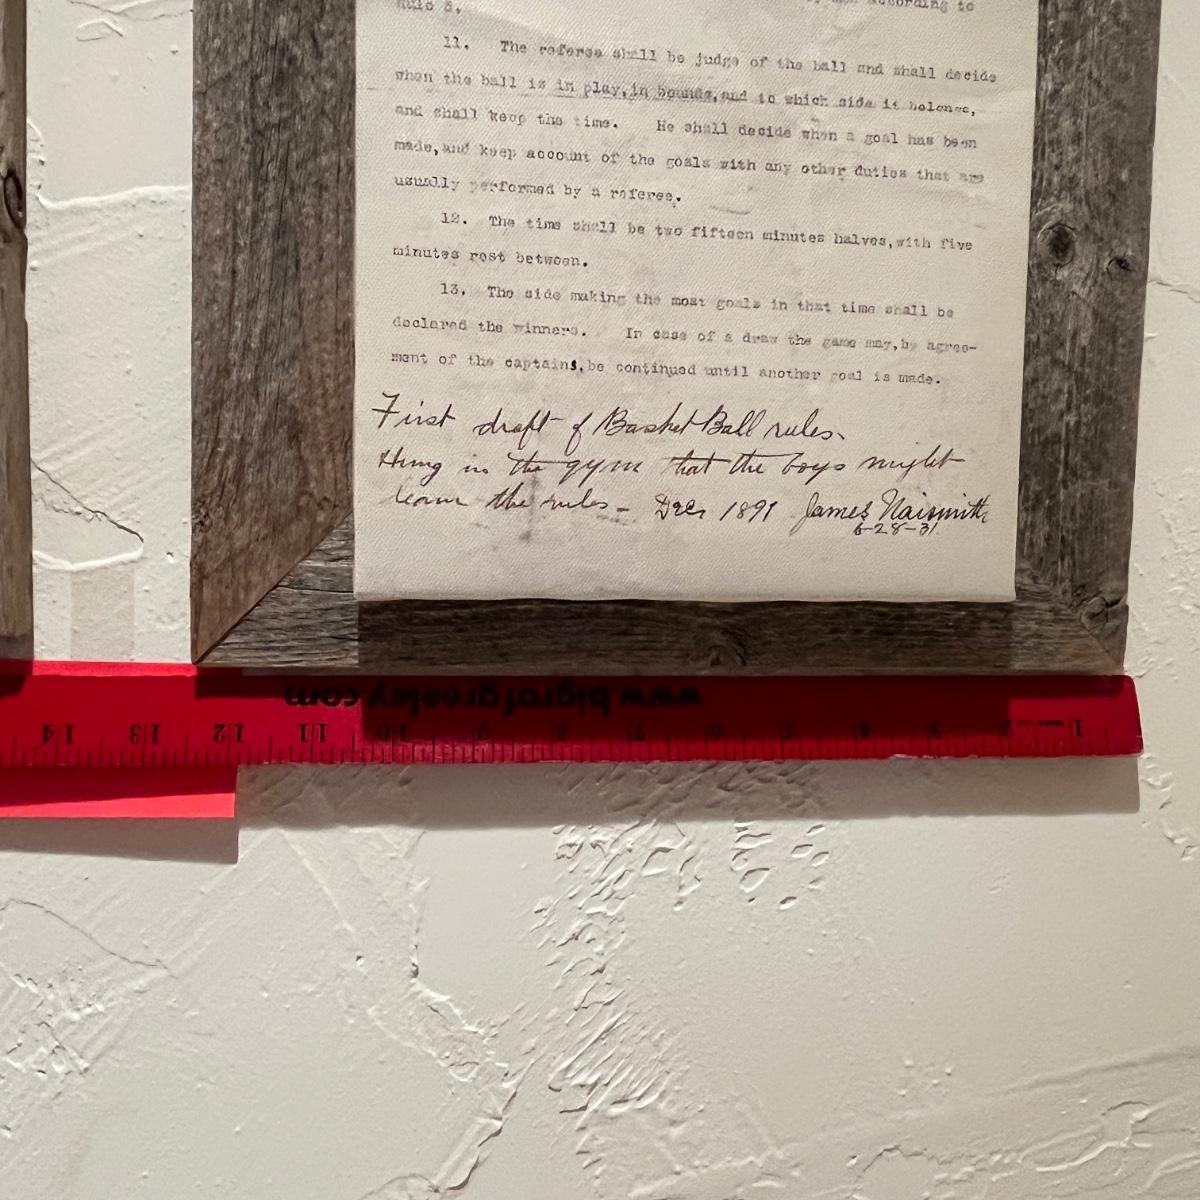 according to
Rule 5.
11. The referee shall be judge of the ball and shall decide
when the ball is in play,in bounds,and to which side it belongs,
and shall keep the time. He shall decide when a goal has been
made,and keep account of the goals with any other duties that are
usually performed by a referee.
12. The time shall be two fifteen minutes halves,with five
minutes rest between.
13. The side making the most goals in that time shall be
declared the winners. In case of a draw the game may,by agree-
ment of the captains,be continued until another goal is made.
First draft of Basket Ball rules.
Hung in the gym that the boys might
learn the rules - Dec. 1891 James Naismith
6-28-31.
www.bigrofgreeley.com
1 2 3 4 5 6 7 8 9 10 11 12 13 14